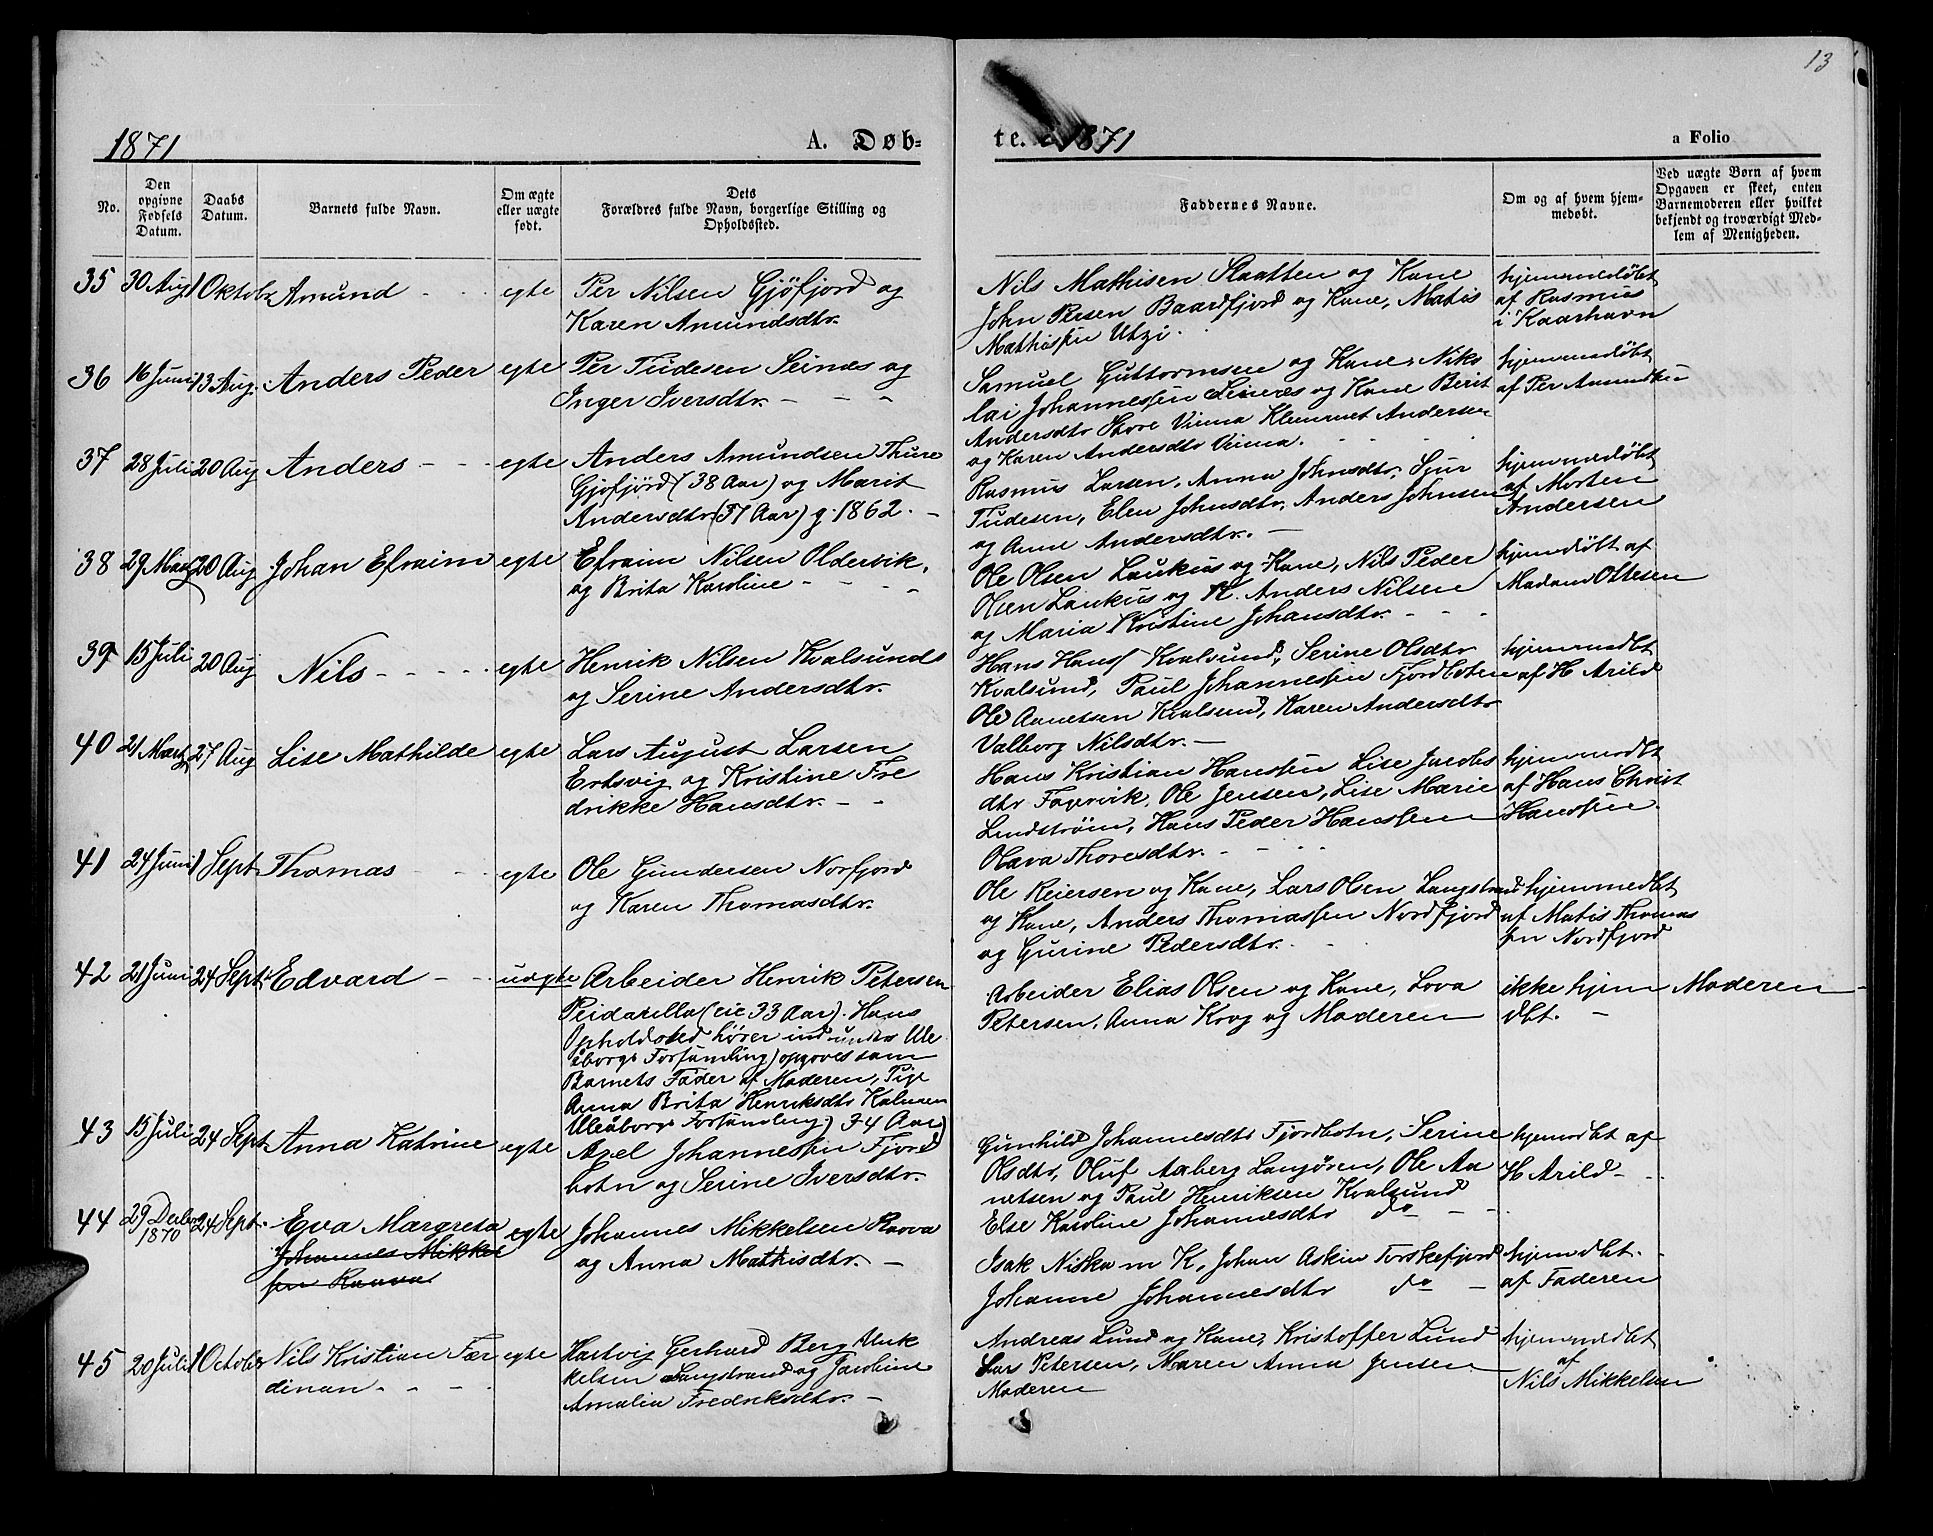 13
1871
A. Døb-
te. 1871
a Folio
No.
Den opgivne Fødsels Datum.
Daabs Datum.
Barnets fulde Navn.
Om ægte eller uægte født.
Dets Forældres fulde Navn, borgerlige Stilling og Opholdssted.
Faddernes Navne.
Om og af hvem hjemmedøbt.
Ved uægte Børn af hvem Opgaven er skeet, enten Barnemoderen eller hvilket bekjendt og troværdigt Medlem af Menigheden.
35 30 Aug 1 Oktobr Amund - - egte Per Nilsen Gjøfjord og
Karen Amundsdtr.
Nils Mathisen Slaatten og Kone
John Persen Baardfjord og Kone, Matis
Mathissen Utzi.
hjemmedøbt
af Rasmus
i Kaarhavn
36 16 Juni 13 Aug. Anders Peder egte Per Tudesen Seines og
Inger Iversdtr. - - -
Samuel Guttormsen og Kone, Niko
lai Johannessen Seines og Kone Berit
Andersdtr Store Vinna Klemmet Andersen
og Karen Andersdtr Vinna.
hjemmedøbt
af Per Amundsen
37 28 Juli 20 Aug Anders - - - egte Anders Amundsen Thune
Gjøfjord (38 Aar) og Marit
Andersdtr (37 Aar) g. 1862. -
Rasmus Larsen, Anna Johnsdtr, Sjur
Tudesen, Elen Johnsdtr, Anders Johnsen
og Anne Andersdtr. -
hjemmedøbt
af Morten
Andersen
38 29 Marz 20 Aug Johan Efraim egte Efraim Nilsen Oldervik,
og Brita Karoline - - -
Ole Olsen Laukius og Kone, Nils Peder
Olsen Laukius og K. Anders Nilsen
og Maria Kristine Johansdtr. - - -
hjemdøbt af
Madam Ottesen
39 15 Juli 20 Aug Nils - - - - egte Henrik Nilsen Kvalsund
og Serine Andersdtr.
Hans Hans Kvalsund, Serine Olsdtr
Kvalsund, Paul Johannessen Fjordboten
Ole Aanetsen Kvalsund, Karen Andersdtr
Valborg Nilsdtr. -
hjemmedbt
af H Arild
40 21 Martz 27 Aug Lise Mathilde egte Lars August Larsen
Ertsvig og Kristine Fre
drikke Hansdtr. - -
Hans Kristian Hanssen Lise Jacobs
dtr Fagervik, Ole Jensen, Lise Marie
Lindstrøm, Hans Peder Hanssen
Olava Thoresdtr. - - -
hjemmedbt
af Hans Christ
Hanssen
41 24 Juni 1 Sept Thomas - - egte Ole Gundersen Norfjord
og Karen Thomasdtr.
Ole Reiersen og Kone, Lars Olsen Langstrand
og Kone, Anders Thomassen Nordfjord
og Gurine Pedersdtr.
hjemmedbt
af Matis Thomas
sen Nordfjord
42 21 Juni 24 Sept Edvard - - uægte Arbeider Henrik Petersen
Peidarilla (cic 33 Aar). Hans
Opholdssted hører ind under Ule
åborgs Forsamling) opgives som
Barnets Fader af Moderen, Pige
Anna Brita Henriksdtr Kalunen
Uleåborgs Forsamling) 34 Aar)
Arbeider Elias Olsen og Kone, Lova
Petersen, Anna Krog og Moderen
ikke hjem
dbt. -
Moderen -
43 15 Juli 24 Sept Anna Katrine egte Axel Johannessen Fjord
botn og Serine Iversdtr.
Gunhild Johannesdtr Fjordbotn, Serine
Olsdtr, Oluf Aaberg Langøren, Ole Aa
netsen og Paul Henriksen Kvalsund
Else Karoline Johannesdtr do - -
hjemdbt af
H Arild - -
44 29 Decbr 1870 24 Sept. Eva Margreta
Johannes Mikkel
sen Raava
egte Johannes Mikkelsen Raava
og Anna Mathisdtr. -
Isak Niska m K, Johan Askin Torskefjord
Johanne Johannesdtr do -
hjemdbt.
af Faderen
45 20 Juli 1 October Nils Kristian Fær
dinan - - -
egte Hartvig Gerhard Berg Mik
kelsen Langstrand og Jacobine
Amalia Fredriksdtr. -
Andreas Lund og Kone, Kristoffer Lund
Lars Petersen, Maren Anna Jensen
Moderen
hjemmedbt
af
Nils Mikkelsen